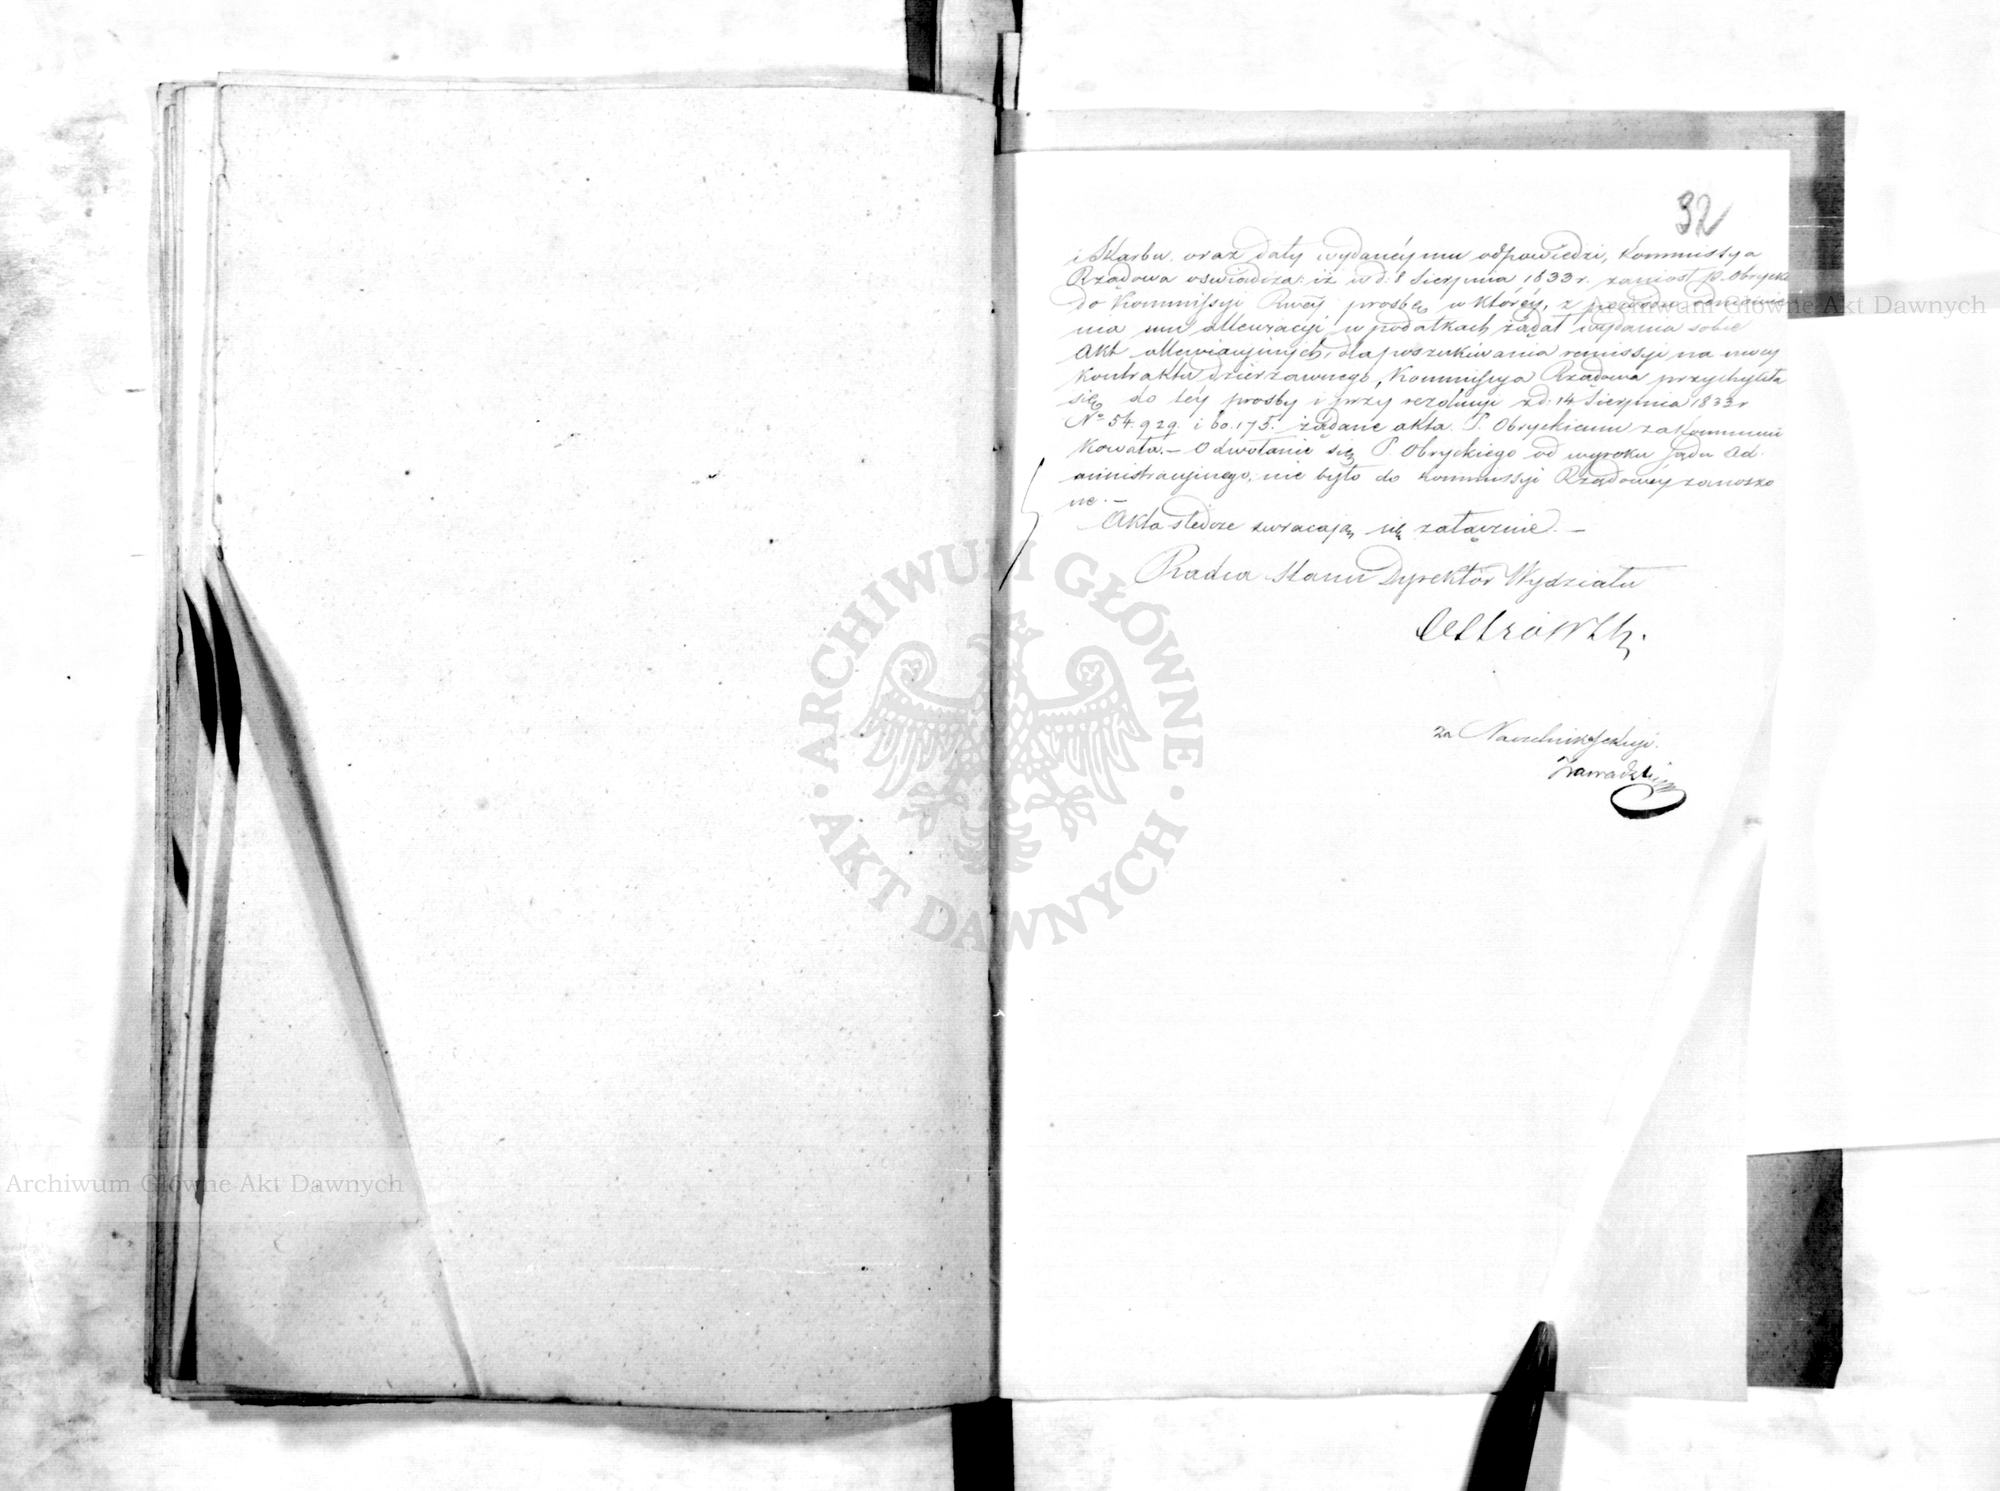 32
i Skarbu oraz daty wydanéy mu odpowiedzi, Kommissya
Rządowa oświadcza: iż w d: 8 Sierpnia 1833 r. zaniosł P. Obrycki
do Kommissyi Rwey prosbę, w któréy, z powodu
nia mu allewiacyi w podatkach żądał wydania sobie
Akt allewiacyinych, dla poszukiwania remissyi na mocy
kontraktu dzierzawnego, Kommissya Rządowa przychyliła
się do téy prosby i przy rezolucyi z d: 14 Sierpnia 1833 r
No 54.929. i 60.175. żądane akta P. Obryckiemu zakommuni
kowała. — Odwołanie się P. Obryckiego od wyroku Sądu Ad-
ministracyinego, nie było do Kommissyi Rządowéy zanoszo
ne. —
Akta śledcze zwracają się załącznie. —
Radca Stanu Dyrektor Wydziału
za Naczelnika Sekcyi.
Zawadzki
Archiwum Główne Akt Dawnych
ARCHIWUM GŁÓWNE AKT DAWNYCH
Archiwum Główne Akt Dawnych